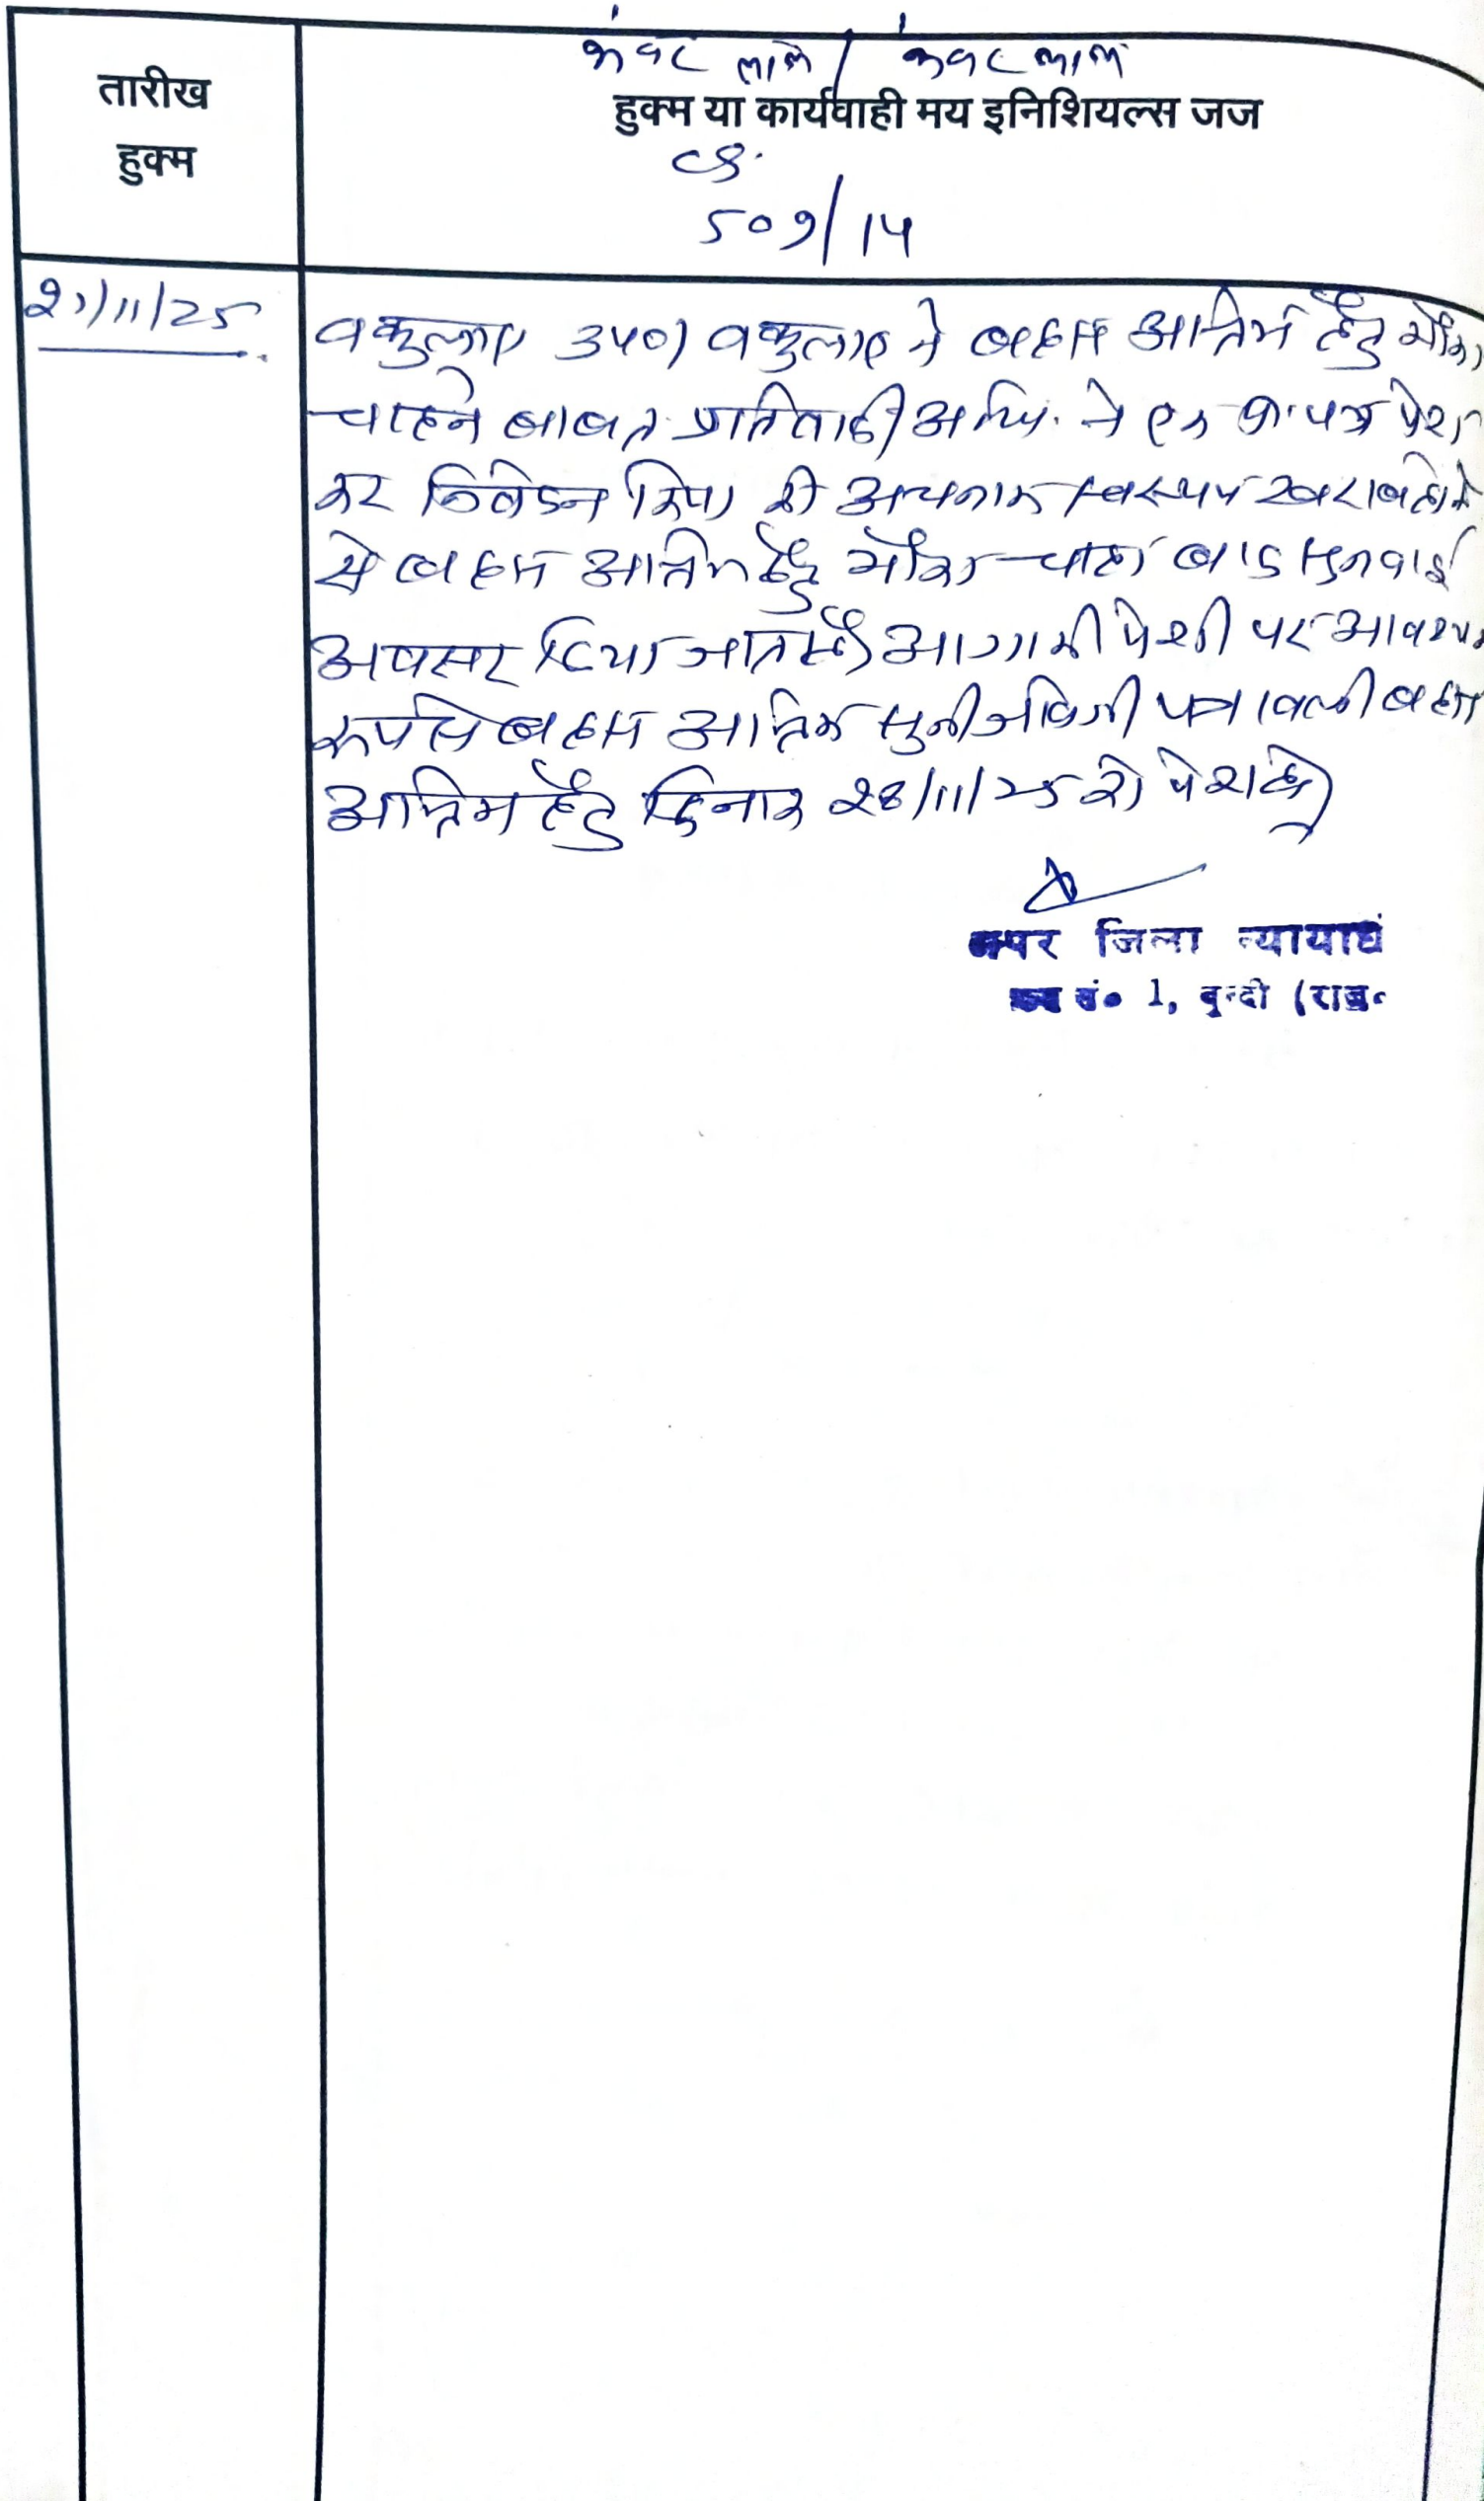 कंवर लाल / कंवर लाल
तारीख
हुक्म
हुक्म या कार्यवाही मय इनिशियल्स जज
CS.
509/14
21/11/25
वकुलाए उप०। वकुलाए ने बहस अन्तिम हेतु मौका
चाहने बाबत प्रतिवादी अधि. ने एक प्रा. पत्र पेश
कर निवेदन किया की अचानक स्वास्थ्य खराब होने
से बहस अन्तिम हेतु मौका चाहा बाद सुनवाई
अवसर दिया जाता है। आगामी पेशी पर आवश्यक
रूप से बहस अन्तिम सुनी जावेगी पत्रावली बहस
अन्तिम हेतु दिनांक 28/11/25 को पेश हो।
अपर जिला न्यायाधी
क्रम सं० 1, बून्दी (राज.